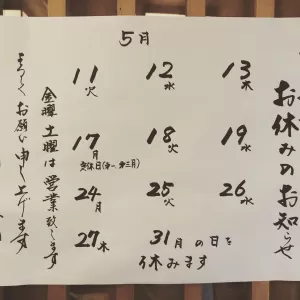 お休みのお知らせ
5月
11火 12水 13木
17月 18火 19水
定休日(第一、第三月)
24月 25火 26水
27木 31月の日を
休みます
金曜 土曜は営業致します
よろしくお願い申し上げます